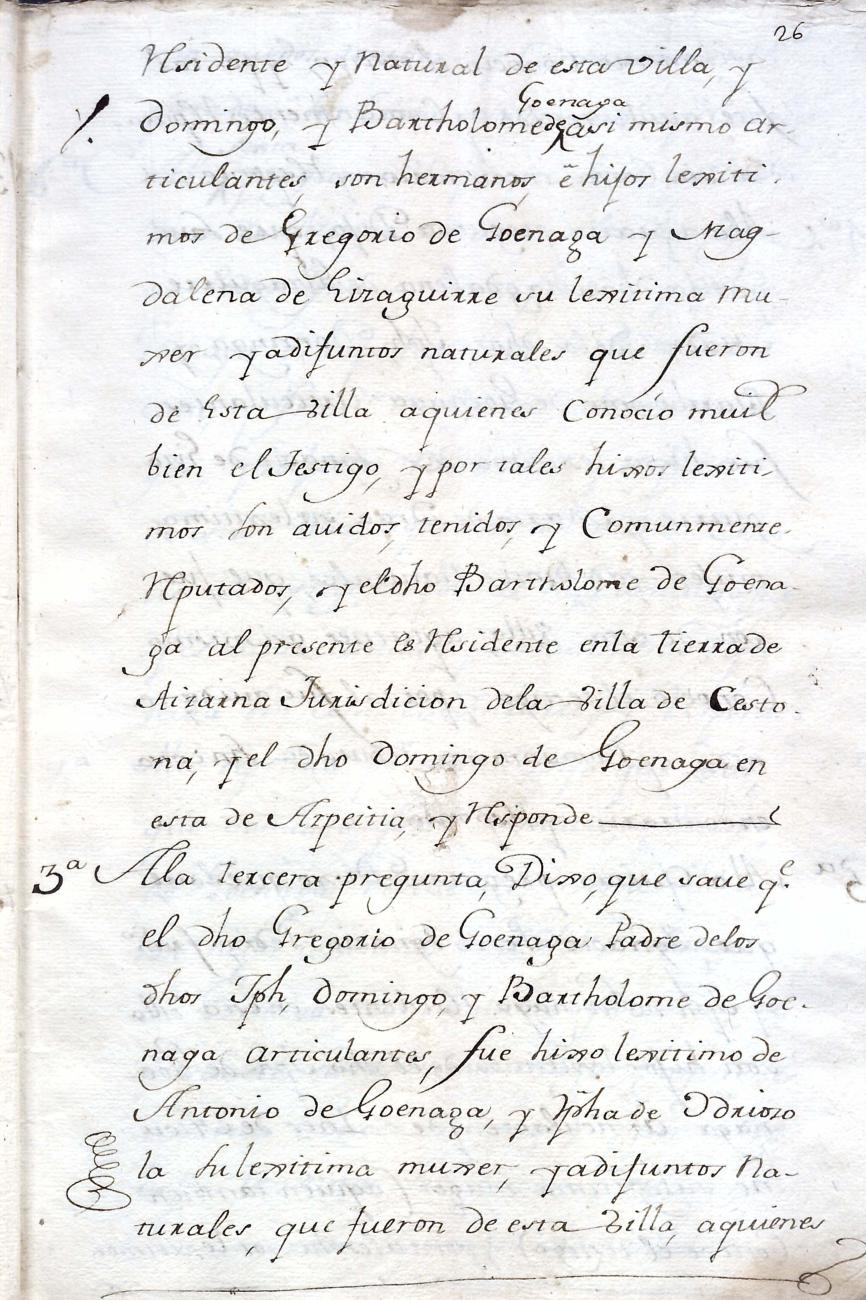 26
Residente y Natural de esta Villa, y
Goenaga
Domingo, y Bartholome de asi mismo ar-
ticulantes, son hermanos, ê hijos lexiti-
mos de Gregorio de Goenaga y Mag-
dalena de Eizaguirre su lexitima Mu-
xer ya difuntos naturales que fueron
de Esta Villa aquienes Conocio mui
bien el Testigo, y por tales hixos lexiti-
mos son auidos, tenidos, y Comunmente
Reputados, y el dho Bartholome de Goena-
ga al presente es Residente enla tierra de
Aizarna Jurisdicion dela Villa de Cesto-
na, y el dho Domingo de Goenaga en
esta de Azpeitia, y Responde
3ª Ala tercera pregunta, Dixo, que saue q.e
el dho Gregorio de Goenaga Padre delos
dhos Jph, Domingo, y Bartholome de Goe-
naga articulantes, fue hixo lexitimo de
Antonio de Goenaga, y Jpha de Odriozo
la su lexitima muxer, ya difuntos Na-
turales, que fueron de esta Villa, aquienes